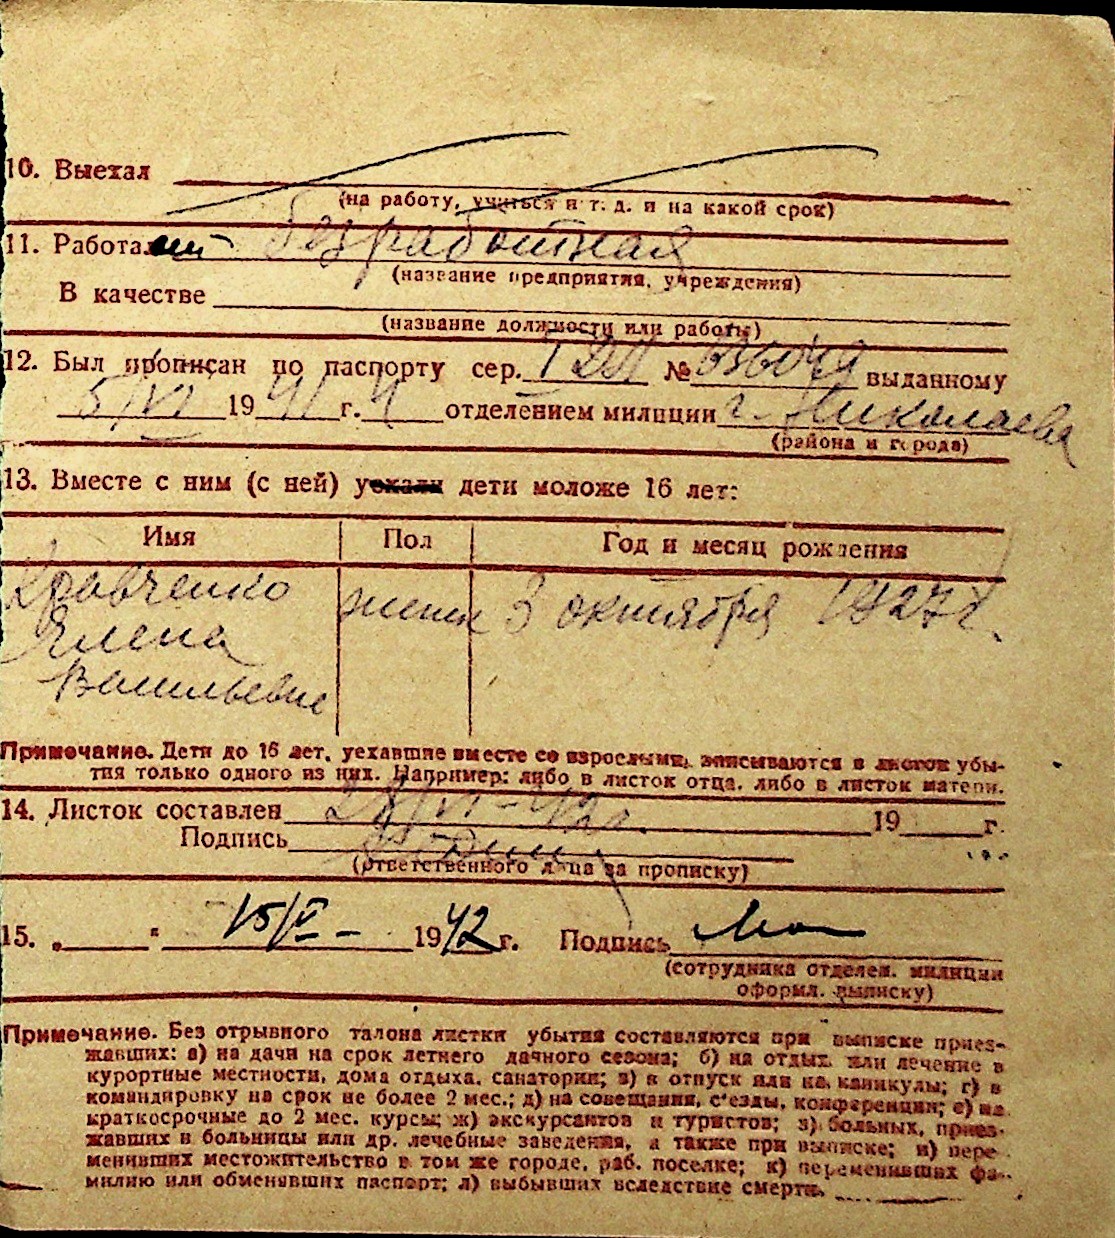 10. Выехал
(на работу, учиться и т. д. и на какой срок)
11. Работал безработная
(название предприятия, учреждения)
В качестве
(название должности или работы)
12. Был прописан по паспорту сер. № выданному
5/VI 1941 г. 4 отделением милиции г. Николаева
(района и города)
13. Вместе с ним (с ней) уехали дети моложе 16 лет:
Имя Пол Год и месяц рождения
Кравченко женск 3 октября 1927 г.
Елена
Васильевне
Примечание. Дети до 16 лет, уехавшие вместе со взрослыми, записываются в листок убы-
тия только одного из них. Например: либо в листок отца, либо в листок матери.
14. Листок составлен 28/VI-42 г. 19 г.
Подпись
(ответственного лица за прописку)
15. „ " 15/V- 1942 г. Подпись
(сотрудника отделен. милиции
оформл. выписку)
Примечание. Без отрывного талона листки убытия составляются при выписке приез-
жавших: а) на дачи на срок летнего дачного сезона; б) на отдых или лечение в
курортные местности, дома отдыха, санатории; в) в отпуск или на каникулы; г) в
командировку на срок не более 2 мес.; д) на совещания, с'езды, конференции; е) на
краткосрочные до 2 мес. курсы; ж) экскурсантов и туристов; з) больных, приез-
жавших в больницы или др. лечебные заведения, а также при выписке; и) пере-
менивших местожительство в том же городе, раб. поселке; к) переменивших фа-
милию или обменявших паспорт; л) выбывших вследствие смерти.